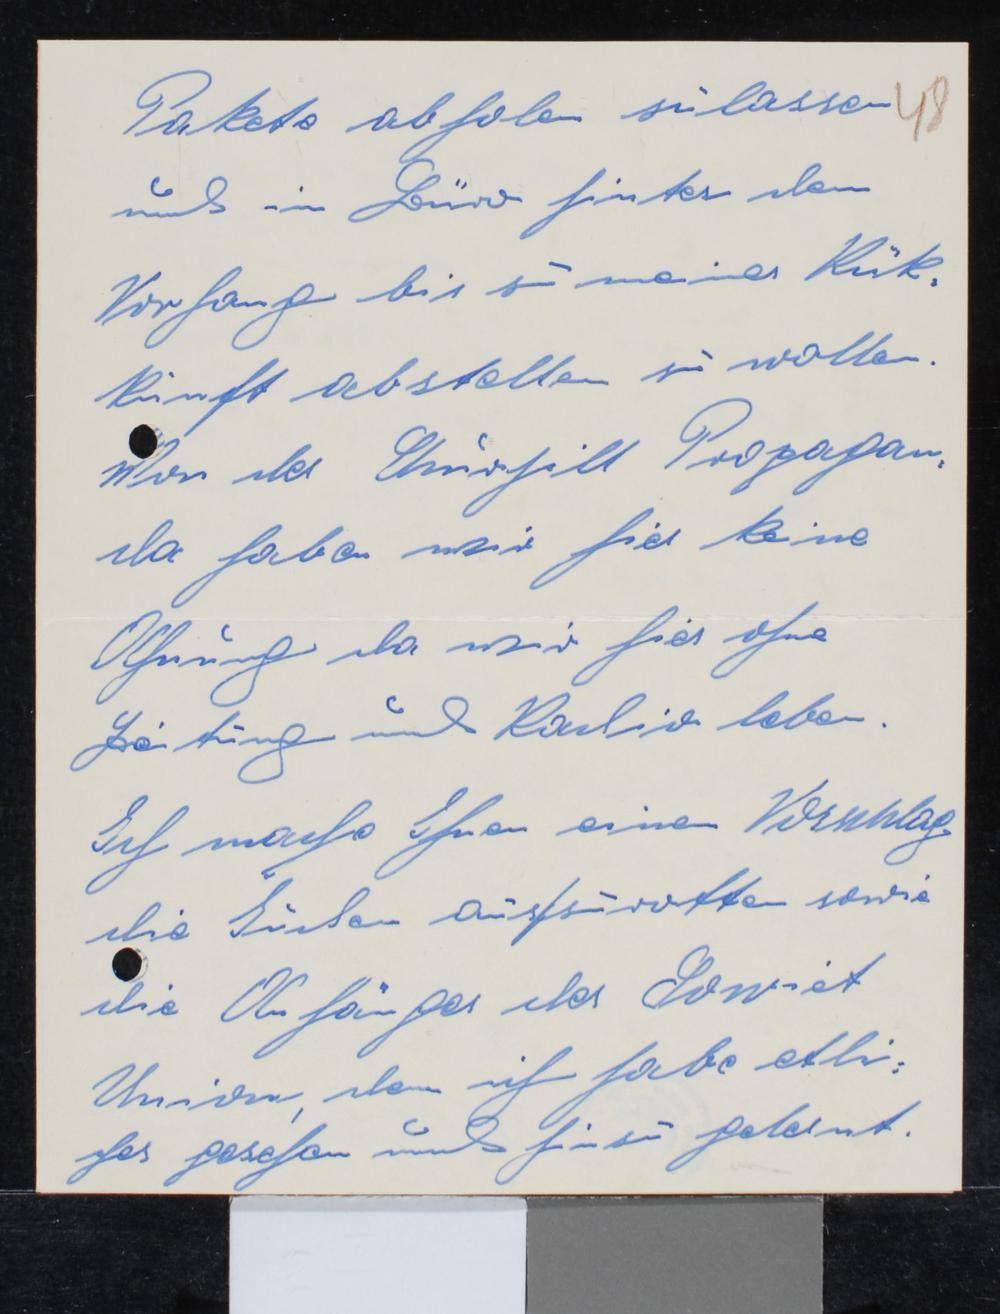 Pakete abholen zu lassen 48
und in Büro hinter dem
Vorhang bis zu meiner Rük-
kunft abstellen zu wollen.
Von der Churhill Propagan-
da haben wir hier keine
Ahnung da wir hier ohne
Zeitung und Radio leben.
Ich mache Ihnen einen Vorschlag
die Juden auszurotten sowie
die Anhänger der Sowiet
Union, den ich habe etli-
ches gesehen und hinzu gelernt.